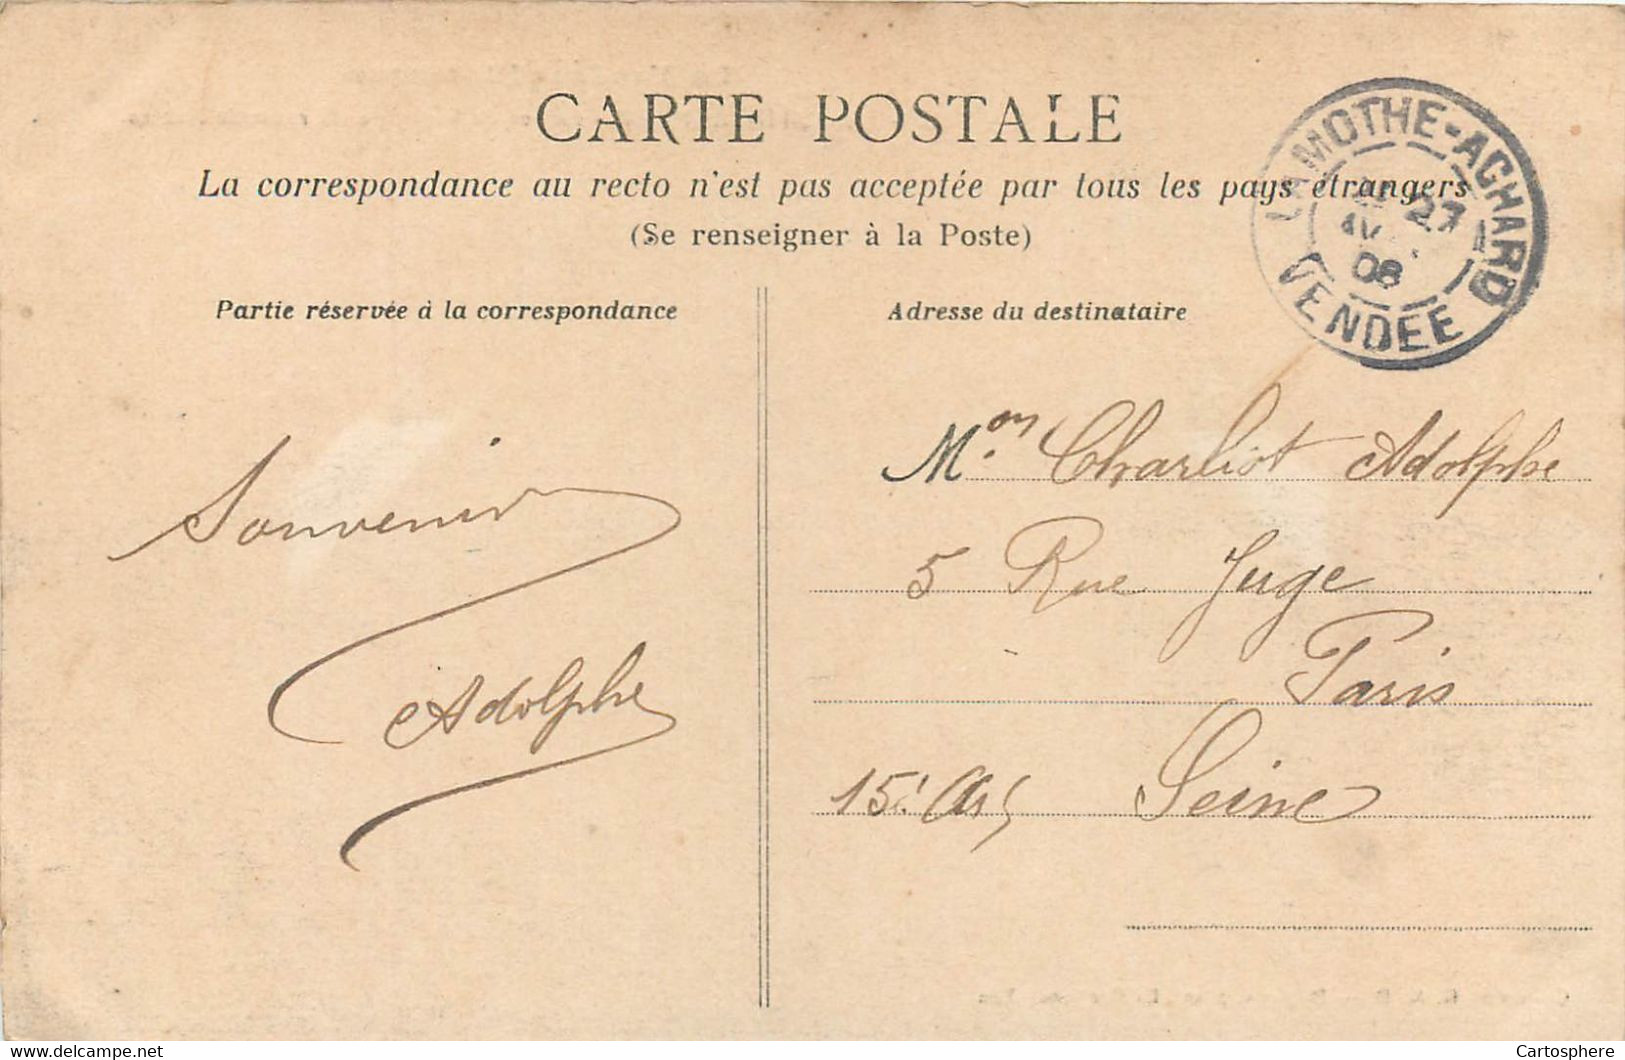 CARTE POSTALE
La correspondance au recto n'est pas acceptée par tous les pays étrangers
(Se renseigner à la Poste)
LAMOTHE-ACHARD
27
08
VENDÉE
Partie réservée à la correspondance
Adresse du destinataire
Souvenir
Adolphe
Mon. Charliot Adolphe
5 Rue Juge
Paris
15e Ar Seine
delcampe.net
Cartosphere